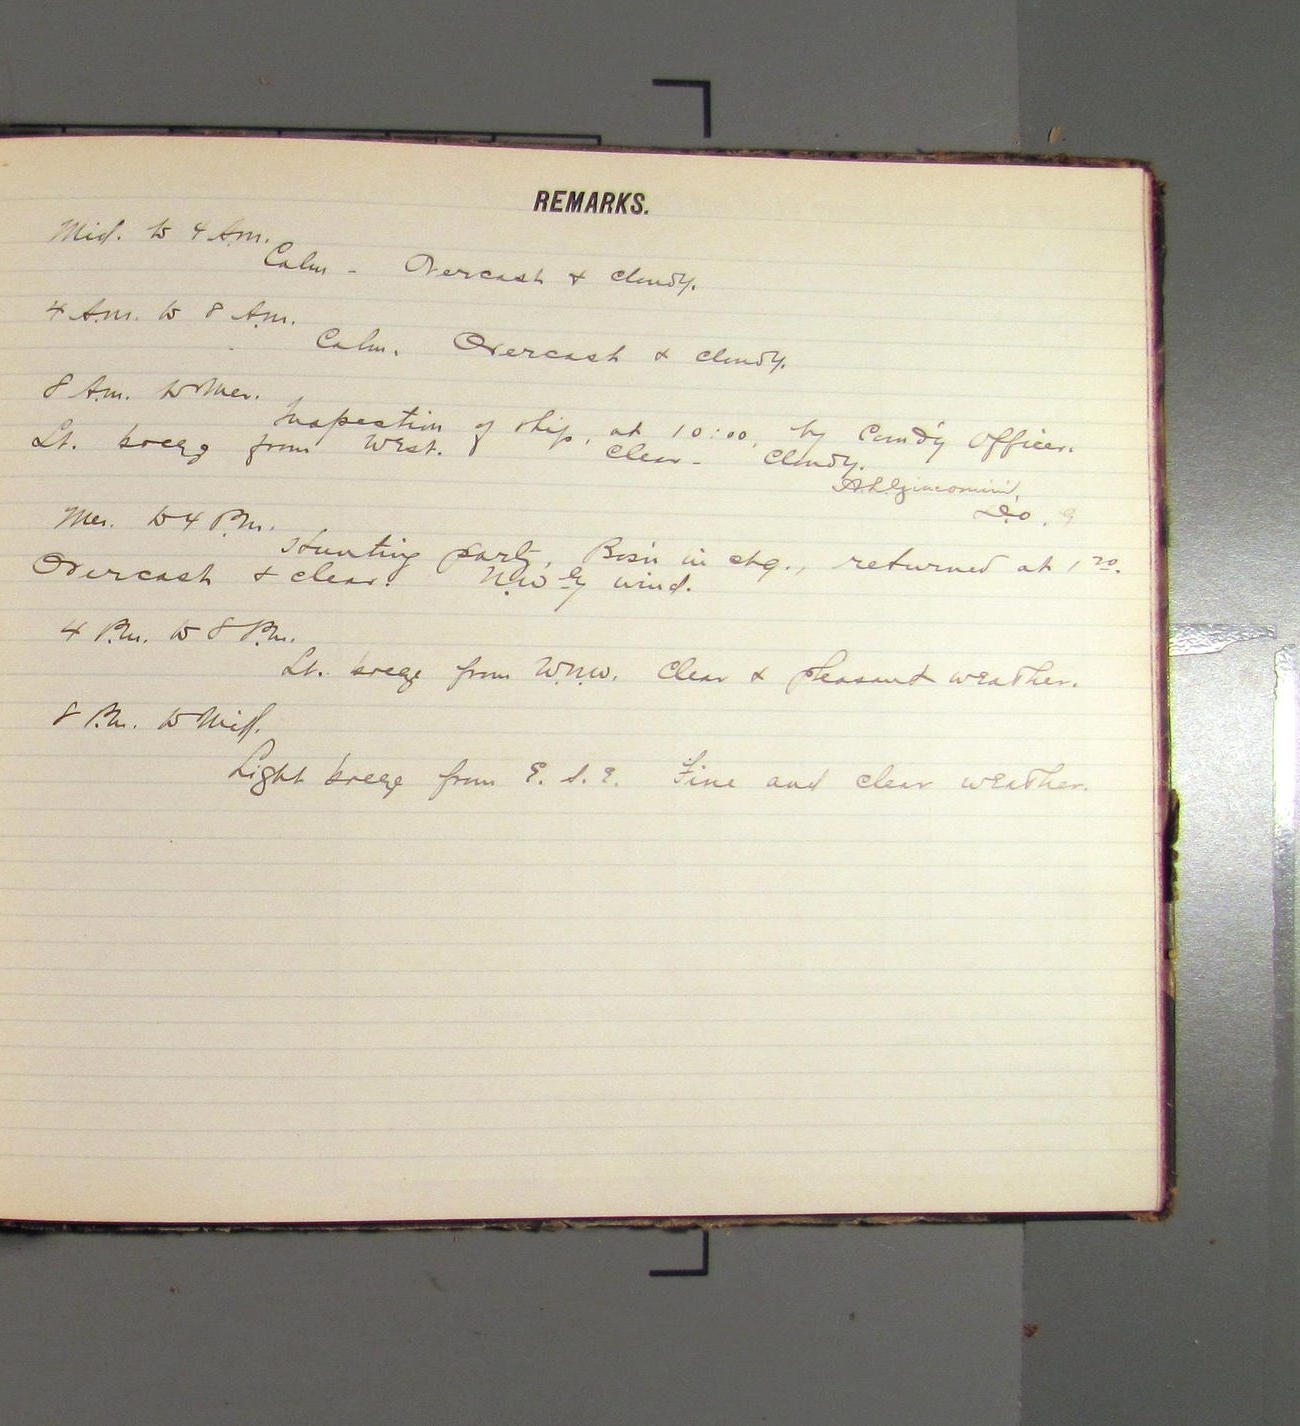 REMARKS.
Mid. to 4 A.m.
Calm - Overcast & cloudy.
4 A.m. to 8 A.m.
Calm. Overcast & cloudy.
8 A.m. to Mer.
Inspection of ship, at 10:00, by Comd'g Officer.
Lt. breeze from West. Clear - Cloudy.
Mer. to 4 P.m.
Hunting party, Bos'n in chg., returned at 1 20.
Overcast & clear. N.W'ly wind.
4 P.m. to 8 P.m.
Lt. breeze from W.N.W. Clear & pleasant weather.
8 P.m. to Mid.
Light breeze from E. S. E. Fine and clear weather.